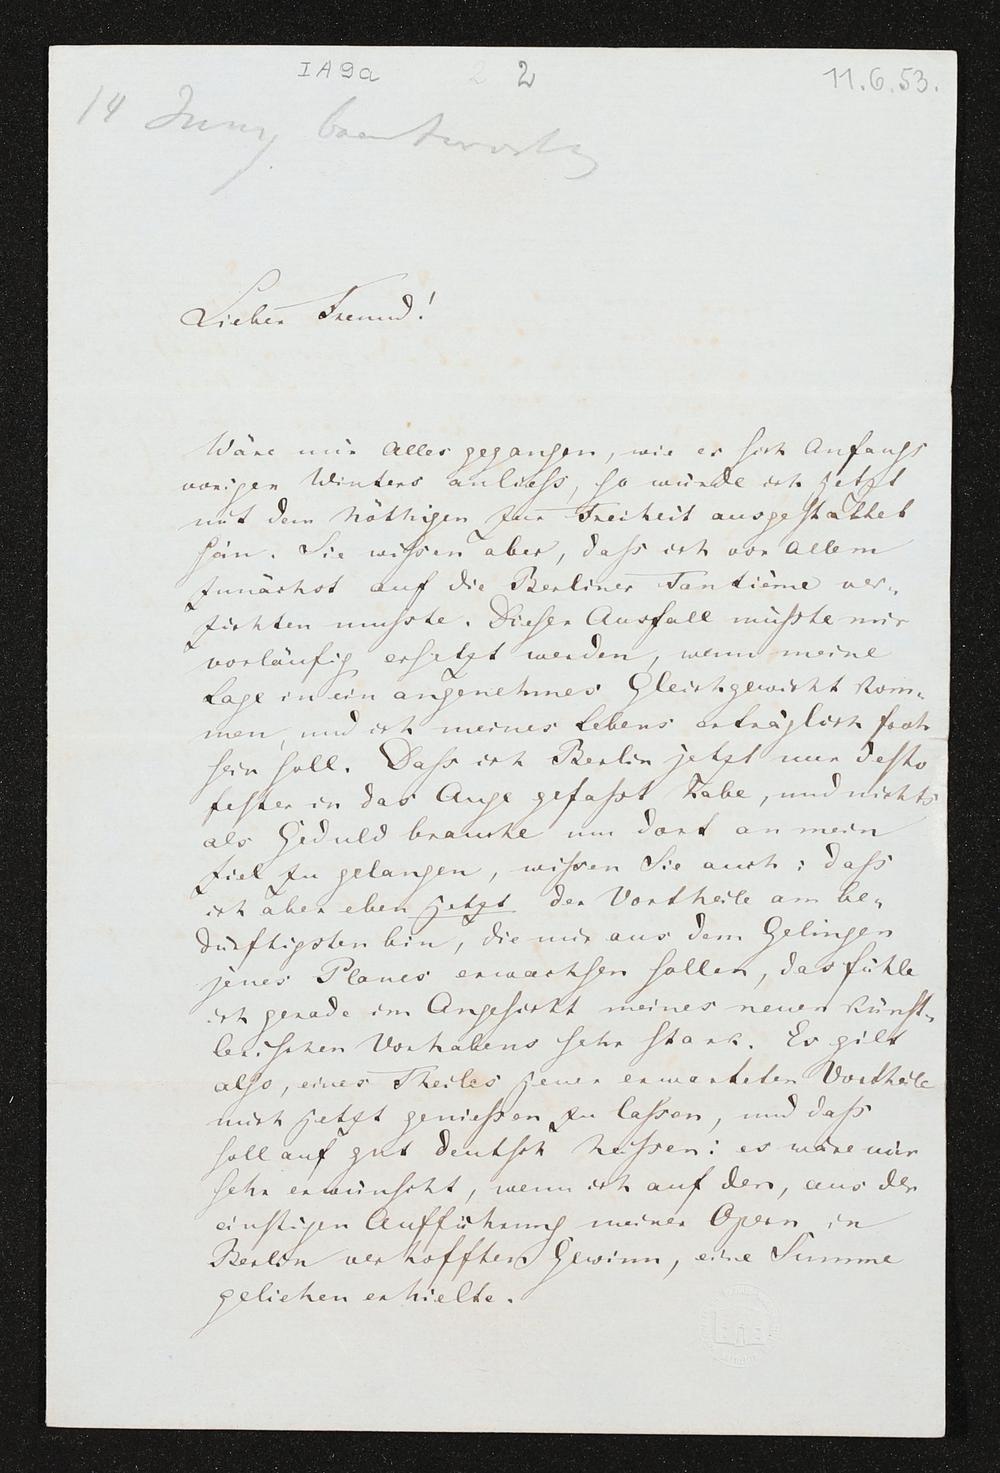 IA9a 2 2 11.6.53.
14 Juny beantwortet
Lieber Freund!
Wäre mir Alles gegangen, wie es sich Anfangs
vorigen Winters anliess, so würde ich jetzt
mit dem Nöthigen zur Freiheit ausgestattet
sein. Sie wissen aber, dass ich vor allem
zunächst auf die Berliner Tantième ver-
zichten musste. Dieser Ausfall müsste mir
vorläufig ersetzt werden, wenn meine
Lage in ein angenehmes Gleichgewicht kom-
men, und ich meines Lebens erträglich froh
sein soll. Dass ich Berlin jetzt nur desto
fester in das Auge gefasst habe, und nichts
als Geduld brauche um dort an mein
Ziel zu gelangen, wissen Sie auch: dass
ich aber eben jetzt der Vortheile am be-
dürftigsten bin, die mir aus dem Gelingen
jenes Planes erwachsen sollen, das fühle
ich gerade im Angesicht meines neuen künst-
lerischen Vorhabens sehr stark. Es gilt
also, eines Theiles jener erwarteten Vortheile
mich jetzt geniessen zu lassen, und dass
soll auf gut deutsch heissen: es wäre mir
sehr erwünscht, wenn ich auf den, aus der
einstigen Aufführung meiner Opern in
Berlin verhofften Gewinn, eine Summe
geliehen erhielte.